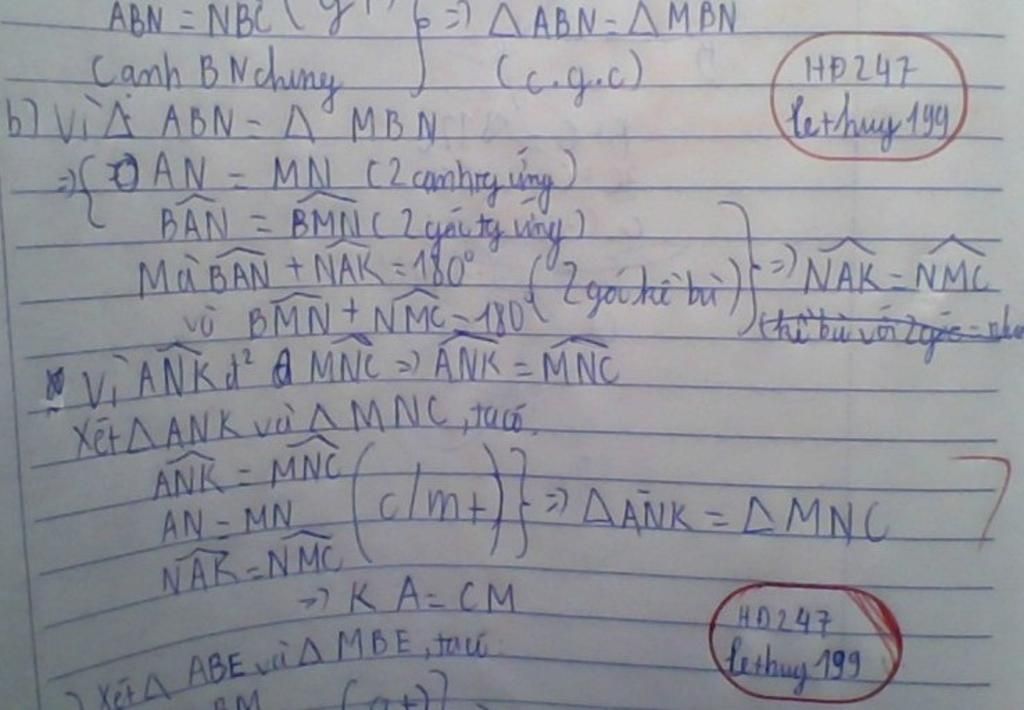 ABN = NBC (g
} => △ ABN = △ MBN
Cạnh BN chung
(c.g.c)
HD247
lethuy199
b) Vì △ ABN = △ MBN
=> { AN = MN (2 cạnh tg ứng)
BAN = BMN (2 góc tg ứng)
Mà BAN + NAK = 180°
và BMN + NMC = 180°
(2 góc kề bù)
} => NAK = NMC
(kề bù với 2 góc = nhau
Vì ANK đ² MNC => ANK = MNC
Xét △ ANK và △ MNC, ta có
ANK = MNC
AN = MN
NAK = NMC
(c/mt) } => △ ANK = △ MNC
=> KA = CM
HD247
lethuy199
) Xét △ ABE và △ MBE, ta có
BM